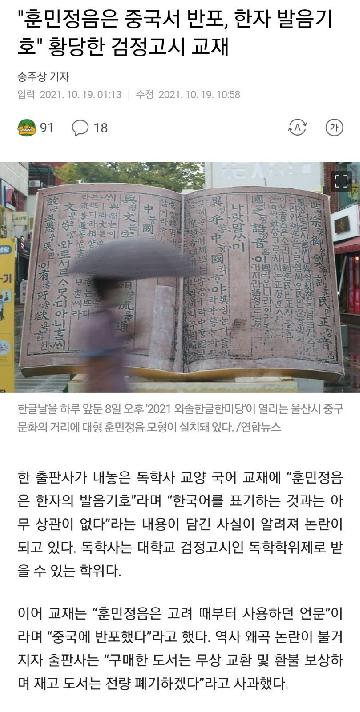 "훈민정음은 중국서 반포, 한자 발음기
호" 황당한 검정고시 교재
송주상 기자
입력 2021. 10. 19. 01:13 | 수정 2021. 10. 19. 10:58
91 18 가
한글날을 하루 앞둔 8일 오후 '2021 외솔한글한마당'이 열리는 울산시 중구
문화의 거리에 대형 훈민정음 모형이 설치돼 있다. /연합뉴스
한 출판사가 내놓은 독학사 교양 국어 교재에 "훈민정음
은 한자의 발음기호"라며 "한국어를 표기하는 것과는 아
무 상관이 없다"라는 내용이 담긴 사실이 알려져 논란이
되고 있다. 독학사는 대학교 검정고시인 독학학위제로 받
을 수 있는 학위다.
이어 교재는 "훈민정음은 고려 때부터 사용하던 언문"이
라며 "중국에 반포했다"라고 했다. 역사 왜곡 논란이 불거
지자 출판사는 "구매한 도서는 무상 교환 및 환불 보상하
며 재고 도서는 전량 폐기하겠다"라고 사과했다.